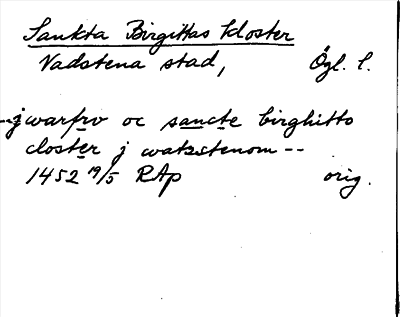 Sankta Birgittas kloster
Vadstena stad, Ögl. l.
--j warfrv oc sancte birghitto
closter j watzstenom--
1452 19/5 RAp orig.